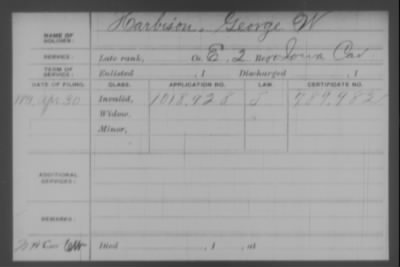 NAME OF SOLDIER: Harbison, George W
SERVICE: Late rank, Co. E. 2 Reg't Iowa Cav.
TERM OF SERVICE: Enlisted , 1 Discharged , 1
DATE OF FILING. CLASS. APPLICATION NO. LAW. CERTIFICATE NO.
1891 Apr. 30 Invalid, 1018.428
Widow,
Minor,
ADDITIONAL SERVICES:
REMARKS:
Died , 1 , at